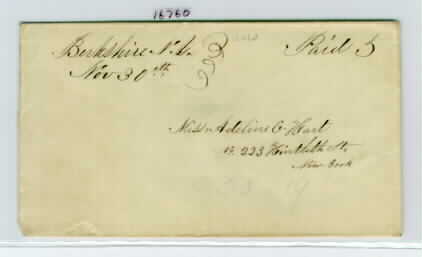 16760
Berkshire N.Y. Paid 5
Nov 30th
Miss Adeline C Hart
No. 233 St.
New York